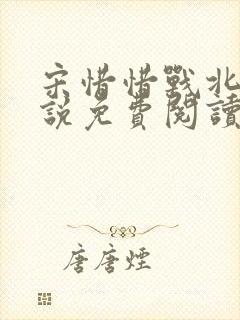 宋惜惜戰北
說免費閱讀
唐唐煙